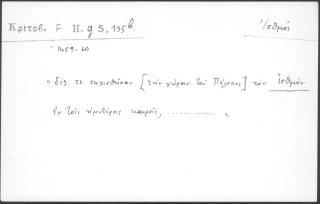 Κριτοβ. F H. g 3, 135b
Ἰσθμός
1459-60
«δίς τε τειχισθεῖσαν [τὴν χώραν τοῦ Πέλοπος] τὸν Ἰσθμὸν
ἐν τοῖς ἡμετέροις καιροῖς, .................. »